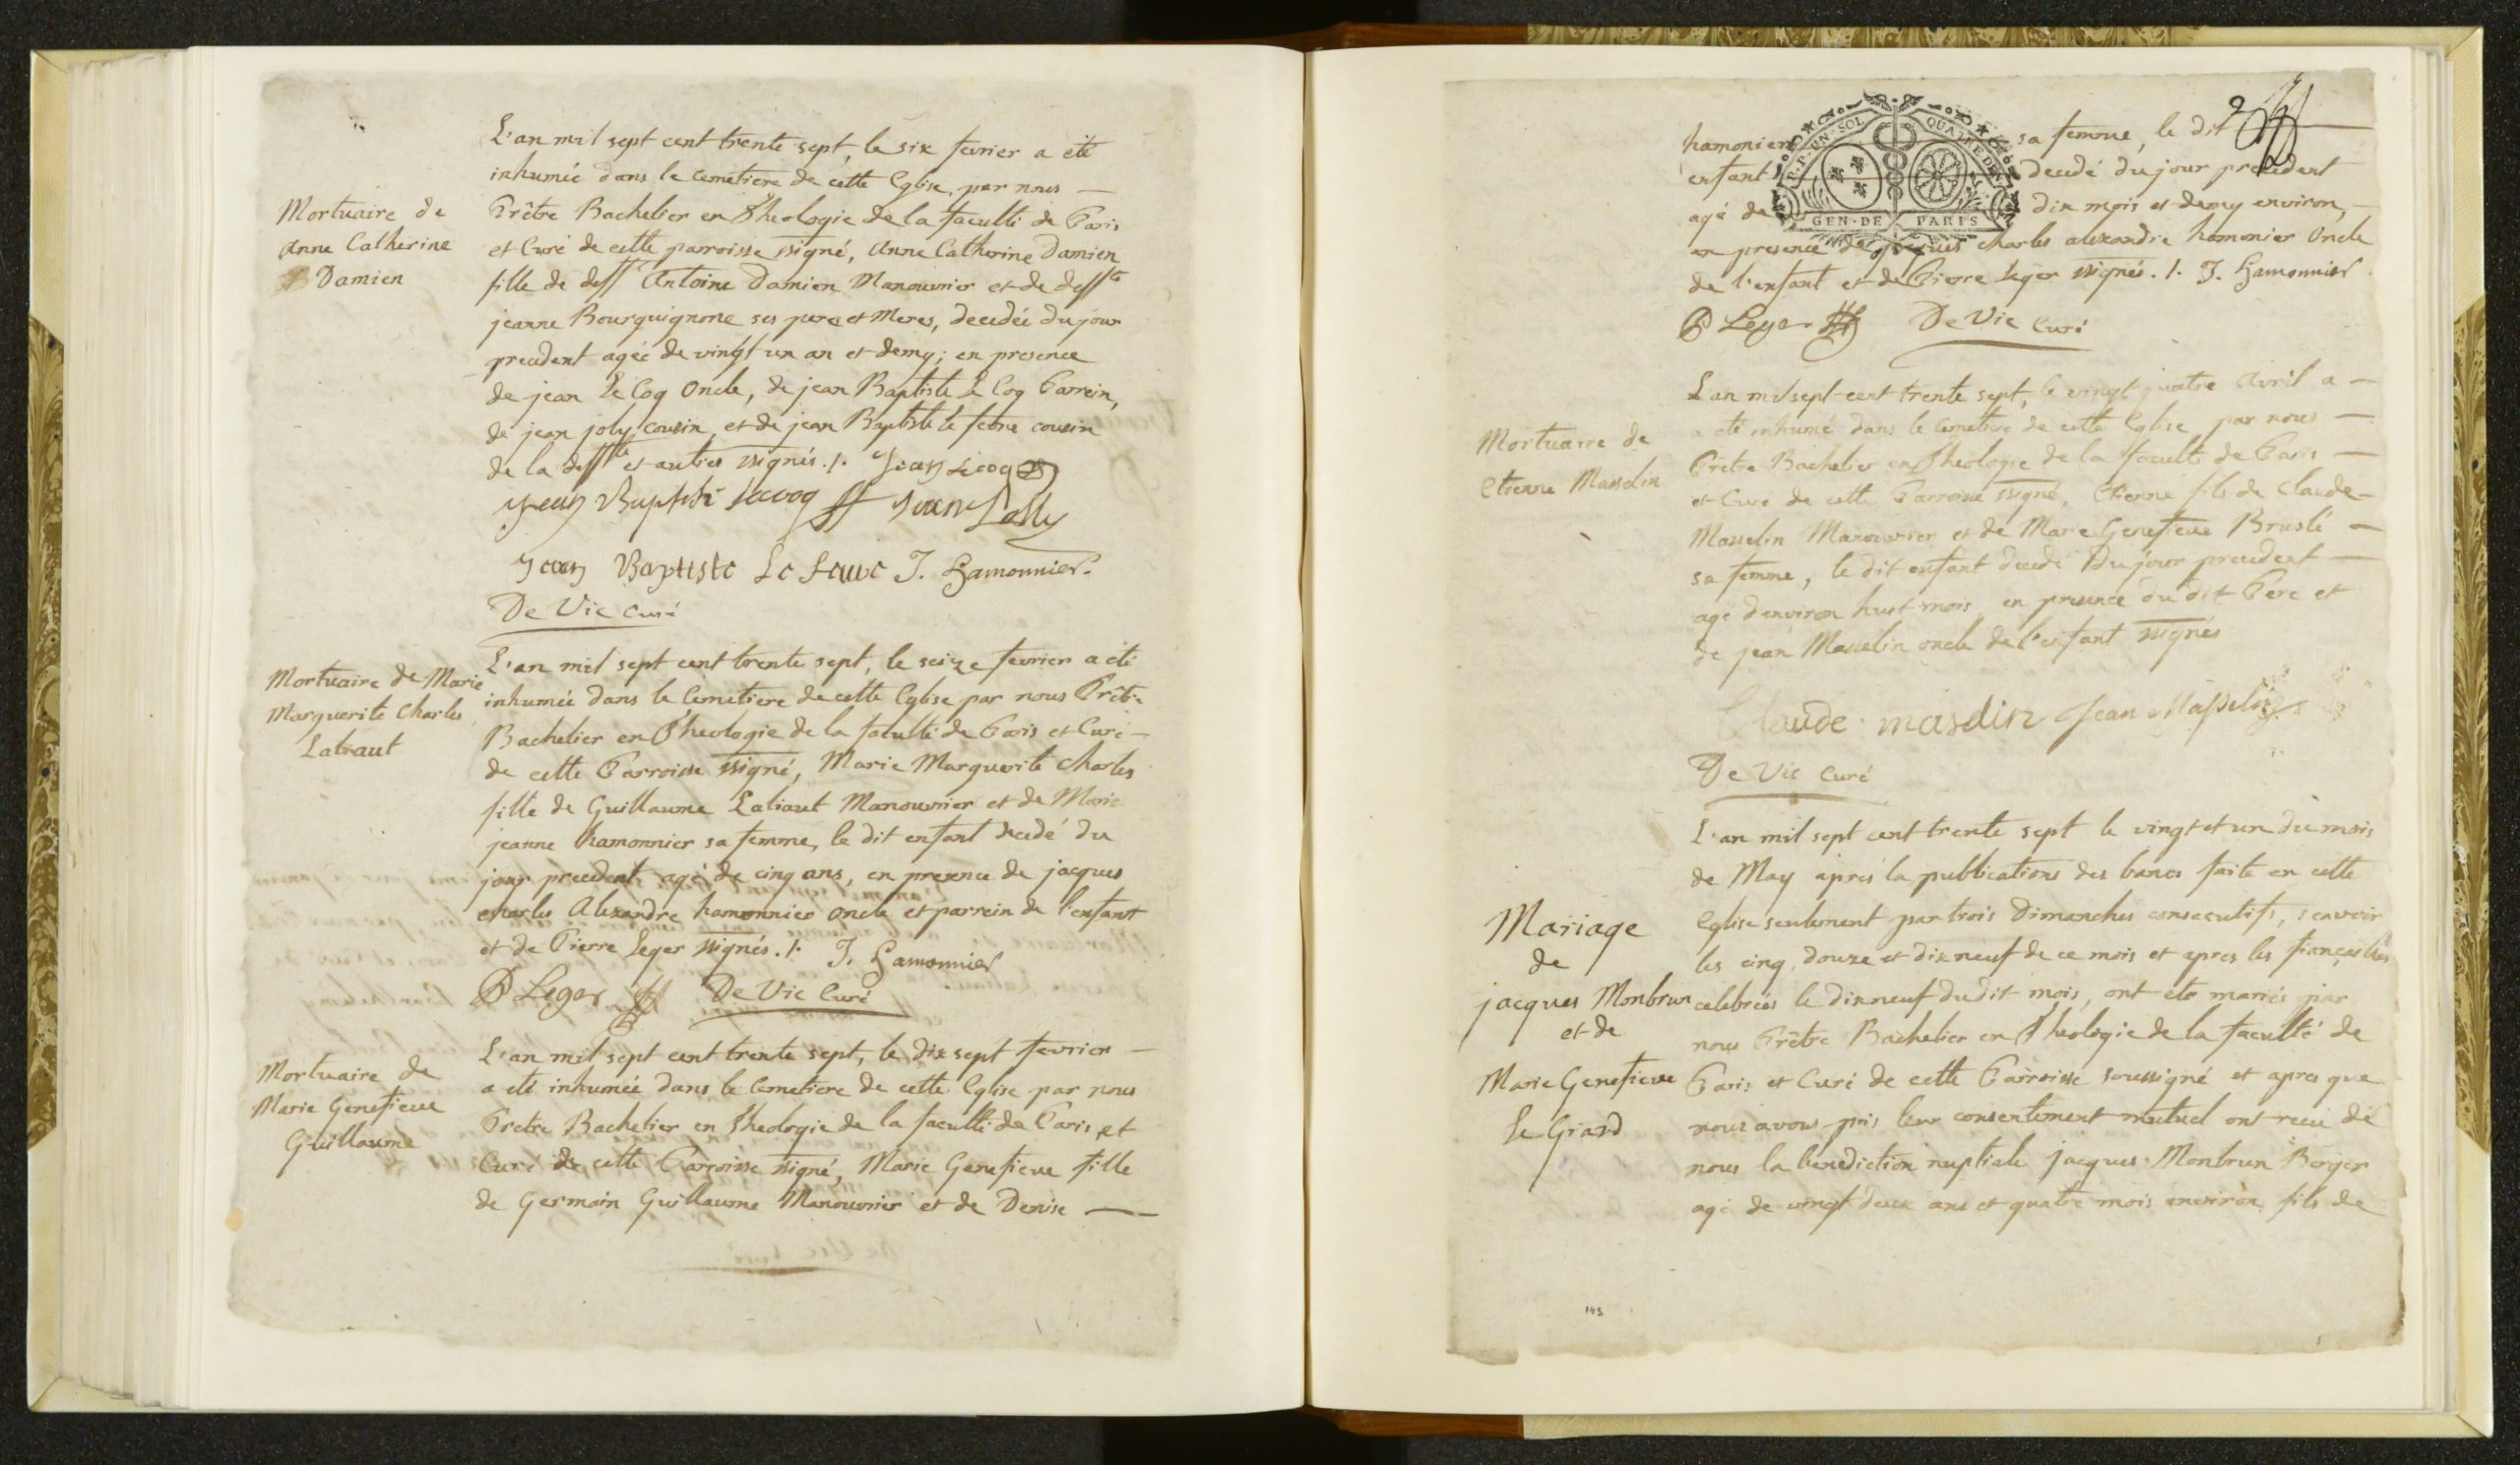 L'an mil sept cent trente sept, le six fevrier a eté
inhumée dans le cemetiere de cette Eglise, par nous —
Mortuaire de
Anne Catherine
Damien
Prêtre Bachelier en Theologie de la faculté de Paris
et Curé de cette parroisse ssigné, Anne Catherine Damien
fille de deff Antoine Damien Manouvrier et de deffte
jeanne Bourguignone ses pere et Meres, decedée du jour
precedent agée de vingt un an et demy; en presence
de jean Le Coq Oncle, de jean Baptiste Le Coq Parrein,
de jean joly cousin, et de jean Baptiste le febvre cousin
de la deffte et autres ssignés ./. Jean Lecoq
Jean Baptiste Lecoq Jean Jolly
Jean Baptiste Le Feuve J. Hamonnier.
De Vic Curé
Mortuaire de Marie
Marguerite Charles
Labraut
L'an mil sept cent trente sept, le seize fevrier a eté
inhumée dans le Cemetiere de cette Eglise par nous Prêtre
Bachelier en Theologie de la faculté de Paris et Curé —
de cette Parroisse ssigné, Marie Marguerite Charles
fille de Guillaume Manouvrier et de Marie
jeanne hamonnier sa femme, le dit enfant decedé du
jour precedent agé de cinq ans, en presence de jacques
charles Alexandre hamonnier oncle et parrein de l'enfant
et de Pierre Leger ssignés ./. J. Hamonnier
P Leger De Vic Curé
Mortuaire de
Marie Genefieve
Guillaume
L'an mil sept cent trente sept, le dix sept fevrier —
a eté inhumée dans le Cemetiere de cette Eglise par nous
Pretre Bachelier en Theologie de la faculté de Paris et
Curé de cette Parroisse ssigné, Marie Genefieve fille
de Germain Guillaume Manouvrier et de Denise —
hamonier sa femme, le dit
enfant decedé du jour precedent
agé de dix mois et demy environ, —
R. P. UN · SOL QUATRE DEN
GEN · DE PARIS
en presence de jacques charles alexandre hamonier Oncle
de l'enfant et de Pierre Leger ssignés ./. J. Hamonnier
P Leger De Vic Curé
Mortuaire de
Etienne Masselin
L'an mil sept cent trente sept, le vingt quatre Avril a —
a eté inhumé dans le Cemetiere de cette Eglise par nous —
Prêtre Bachelier en Theologie de la faculté de Paris —
et Curé de cette Parroisse ssigné, Etienne fils de Claude —
Masselin Manouvrier et de Marie Genefieve Bruslé —
sa femme, le dit enfant decedé Du jour precedent —
agé d'environ huit mois, en presence du dit Pere et
de jean Masselin oncle de l'enfant ssignés
Claude masslin Jean Masselin
De Vic Curé
Mariage
de
jacques Monbrun
et de
Marie Genefieve
Le Giard
L'an mil sept cent trente sept le vingt et un du mois
de May aprés la publications des bancs faite en cette
Eglise seulement par trois Dimanches consecutifs, scavoir
les cinq, douze et dix neuf de ce mois et apres les fiançailles
celebrées le dixneuf du dit mois, ont eté mariés par
nous Prêtre Bachelier en Theologie de la faculté de
Paris et Curé de cette Parroisse soussigné et apres que
nous avons pris leur consentement mutuel ont receu de
nous la benediction nuptiale jacques Monbrun Berger
agé de vingt deux ans et quatre mois environ, fils de
143